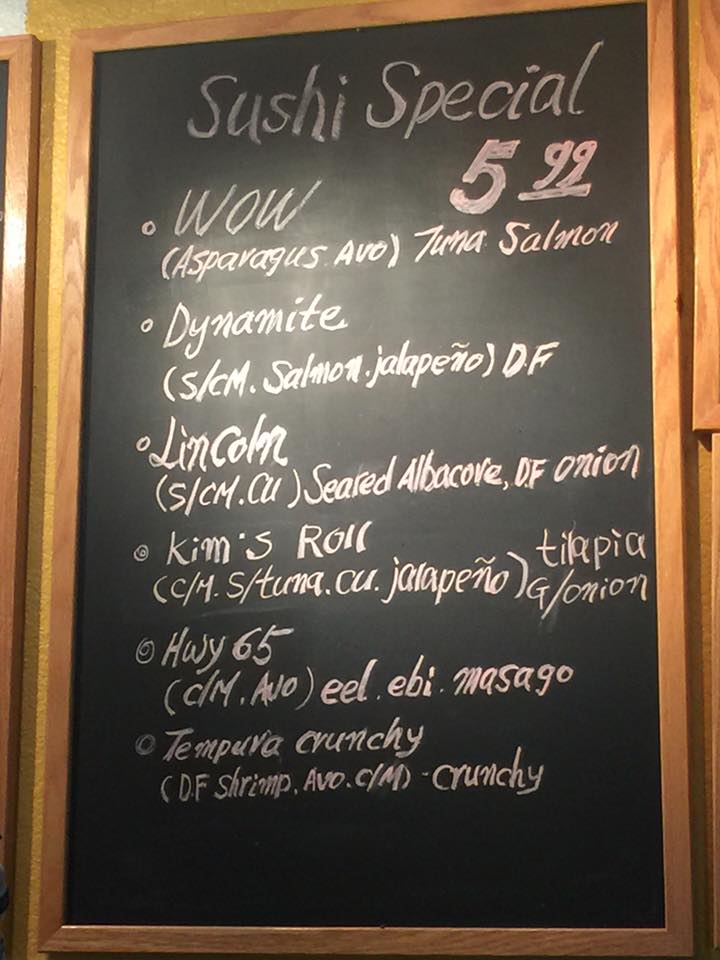 Sushi Special
5 99
WOW
(Asparagus. Avo) Tuna Salmon
Dynamite
(S/CM. Salmon. jalapeño) D.F
Lincoln
(S/CM. CU) Seared Albacore, DF onion
Kim's Roll
(C/M. S/tuna. cu. jalapeño) tilapia G/onion
Hwy 65
(C/M. Avo) eel. ebi. masago
Tempura crunchy
(D.F Shrimp. Avo. C/M) - crunchy